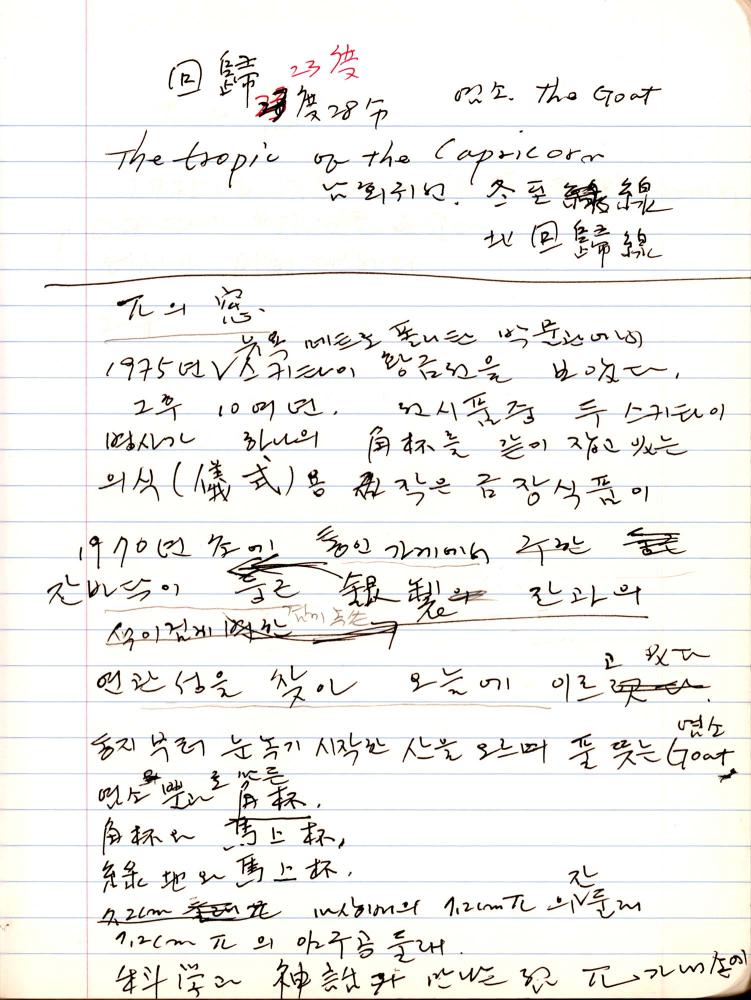 回歸 23度
度28分 염소. the Goat
The tropic of the Capricorn
남회귀선. 冬至 線
北回歸線
π의 窓.
뉴욕 메트로폴리탄 박물관에서
1975년 스키타이 황금전을 보았다.
그후 10여년. 전시품중 두 스키타이
병사가 하나의 角杯를 같이 잡고 있는
의식(儀式)용 작은 금장식품이
1970년 초에 통인가게에서 구한
잔바닥이 둥근 銀製 잔과의
색이 검게 변한
연관성을 찾아 오늘에 이르고 있다
동지부터 눈녹기 시작한 산을 오르며 풀 뜯는 염소 Goat
염소 뿔과로 만든 角杯.
角杯와 馬上杯,
綠地와 馬上杯.
7.2cm π 의 잔둘레
7.2cm π 의 안주공 둘레.
科学과 神話가 만나는 π. 가 내 손에